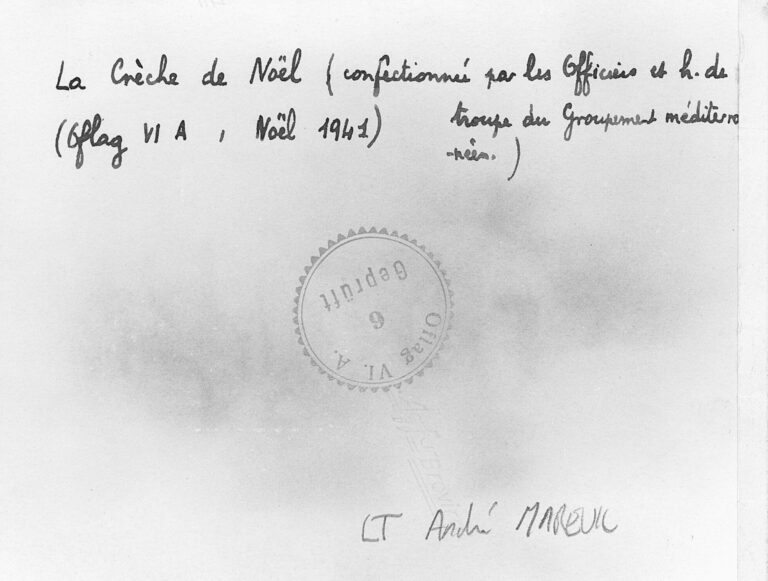 La Crèche de Noël (confectionnée par les Officiers et h. de
(Oflag VI A , Noël 1941) troupe du Groupement méditerra
-néen.)
Geprüft
6
Oflag VI. A.
LT André MAREUIL